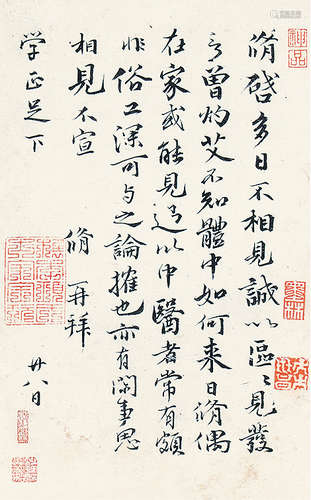 脩啓多日不相見誠以區々見發
言曾灼艾不知體中如何来日脩偶
在家或能見過此中醫者常有頗
非俗工深可与之論搉也亦有閑事思
相見不宣　脩再拜
学正足下　廿八日
神品